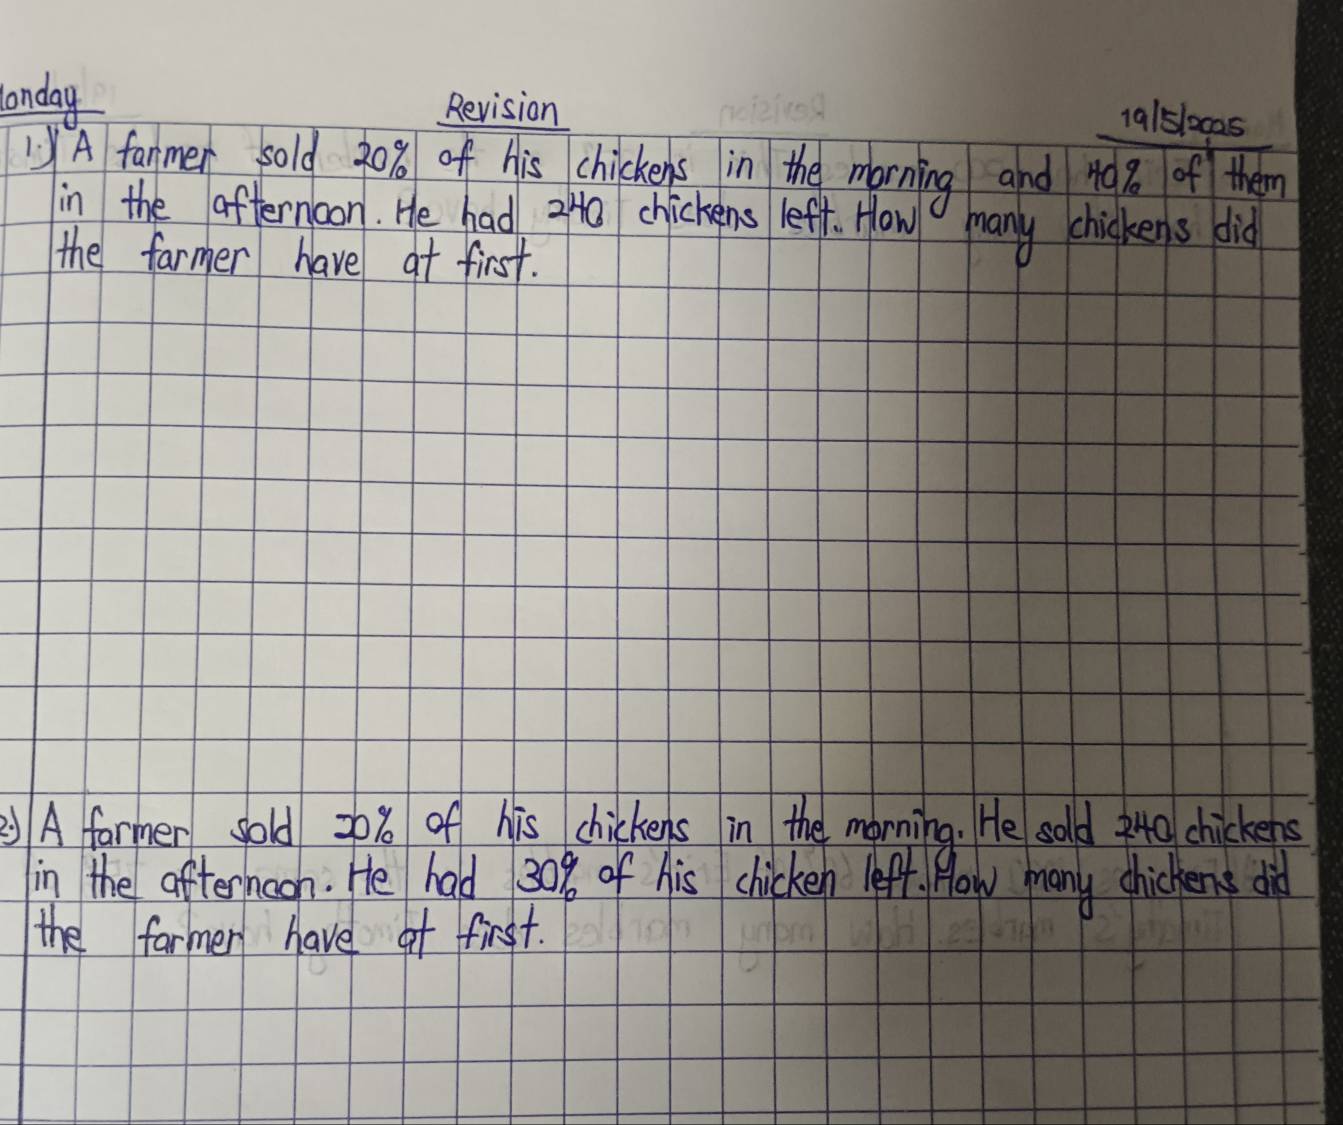 Monday Revision 19/5/2025
1.) A farmer sold 20% of his chickens in the morning and 40% of them
in the afternoon. He had 240 chickens left. How many chickens did
the farmer have at first.
2.) A farmer sold 20% of his chickens in the morning. He sold 240 chickens
in the afternoon. He had 30% of his chicken left. How many chickens did
the farmer have at first.